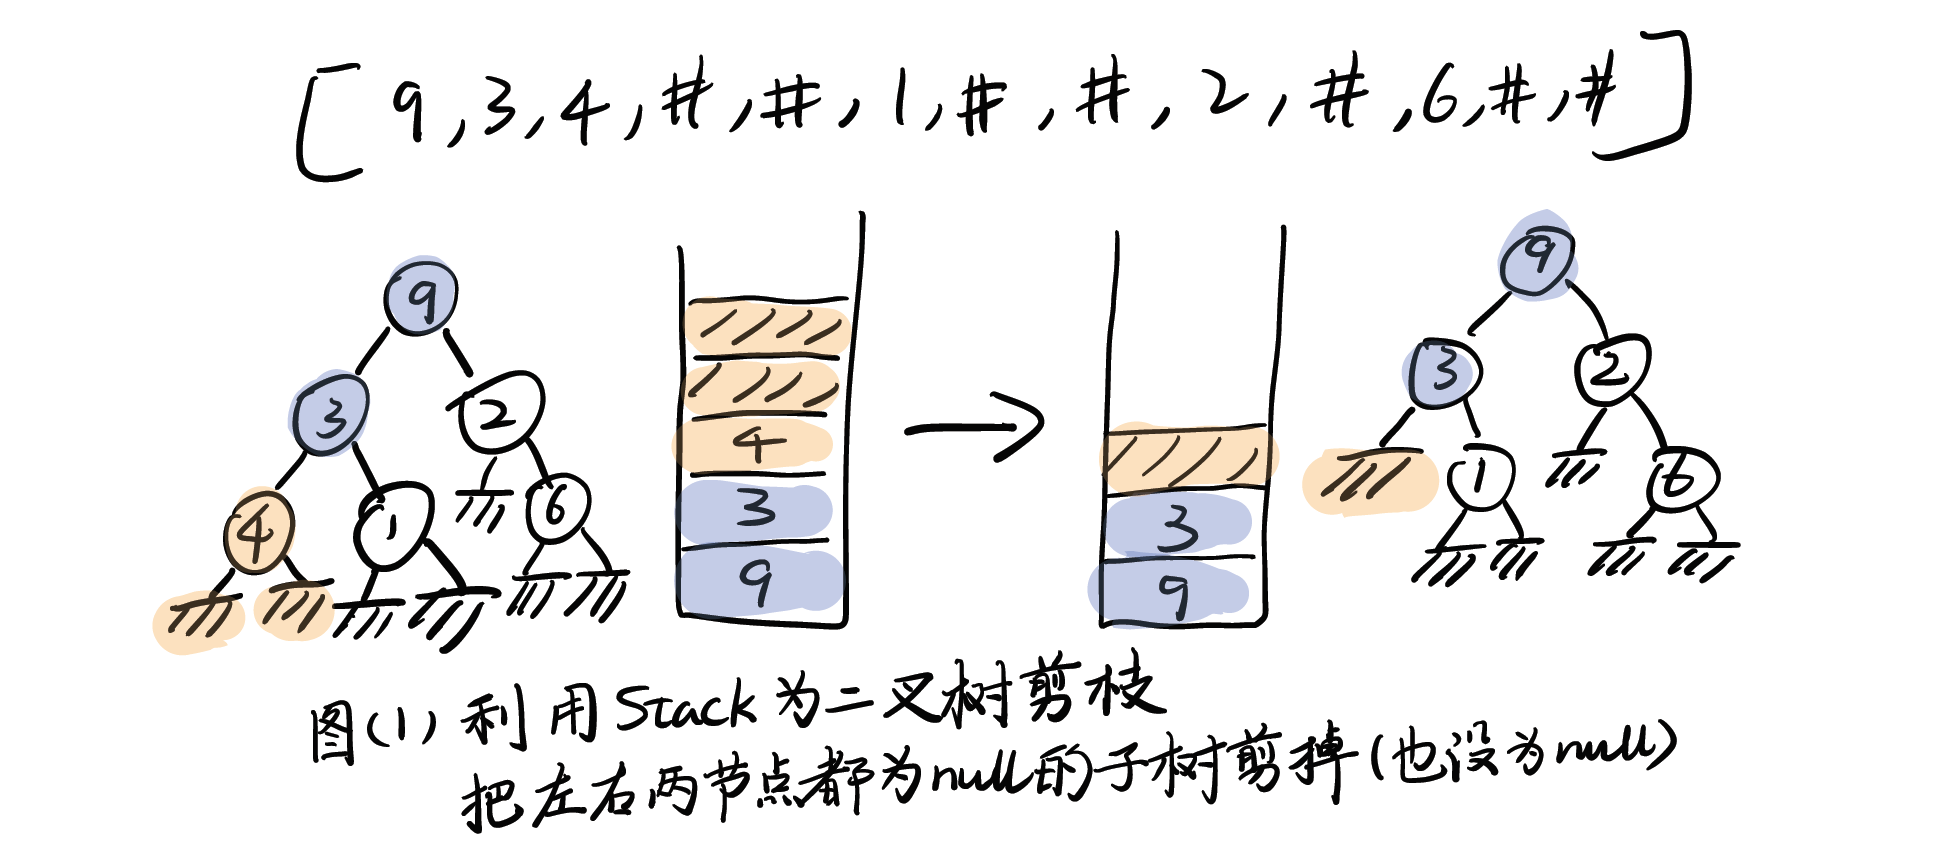 [9,3,4,#,#,1,#,#,2,#,6,#,#]
9
3
2
4
1
6
4
3
9
3
9
9
3
2
1
6
图(1) 利用Stack为二叉树剪枝
把左右两节点都为null的子树剪掉(也设为null)